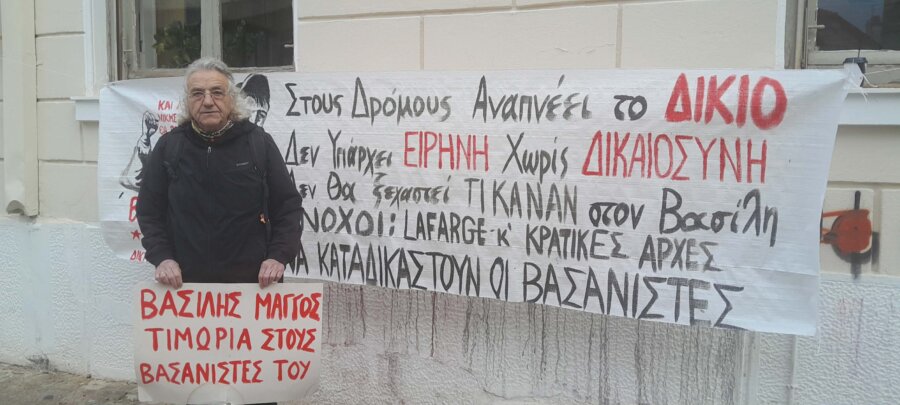 ΚΑΙ
Στους Δρόμους Αναπνέει το ΔΙΚΙΟ
Δεν Υπάρχει ΕΙΡΗΝΗ Χωρίς ΔΙΚΑΙΟΣΥΝΗ
εν Θα ξεχαστεί ΤΙ ΚΑΝΑΝ στον Βασίλη
ΝΟΧΟΙ: LAFARGE-κ' ΚΡΑΤΙΚΕΣ ΑΡΧΕΣ
ΝΑ ΚΑΤΑΔΙΚΑΣΤΟΥΝ ΟΙ ΒΑΣΑΝΙΣΤΕΣ
ΒΑΣΙΛΗΣ ΜΑΓΓΟΣ
ΤΙΜΩΡΙΑ ΣΤΟΥΣ
ΒΑΣΑΝΙΣΤΕΣ ΤΟΥ